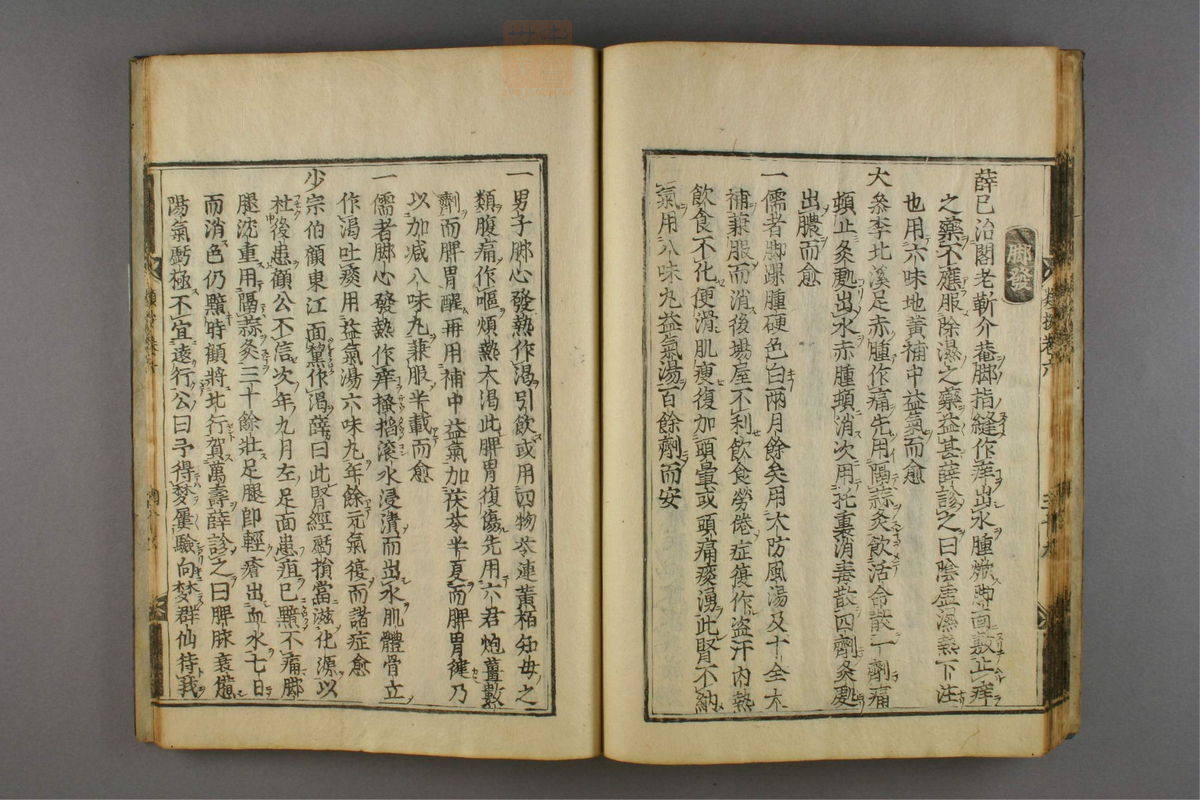 脚發
薛已治閣老靳介菴脚指縫作痒出水腫焮脚面敷止痒
之藥不應服除濕之藥益甚薛診之曰陰虛濕熱下注
也用六味地黃補中益氣而愈
大叅李北溪足赤腫作痛先用隔蒜灸飲活命散一劑痛
頓止灸處出水赤腫頓消次用托裏消毒散四劑灸處
出膿而愈
一儒者脚踝腫硬色白兩月餘矣用大防風湯及十全大
補兼服而消後場屋不利飲食勞倦症復作盜汗內熱
飲食不化便滑肌瘦復加頭暈或頭痛痰湧此腎不納
氣用八味丸益氣湯百餘劑而安
一男子脚心發熱作渴引飲或用四物芩連黃栢知母之
類腹痛作嘔煩熱大渴此脾胃復傷先用六君炮薑數
劑而脾胃醒再用補中益氣加茯苓半夏而脾胃健乃
以加減八味丸兼服半載而愈
一儒者脚心發熱作痒搔搯滾水浸漬而出水肌體骨立
作渴吐痰用益氣湯六味丸年餘元氣復而諸症愈
少宗伯顧東江面黧作渴薛曰此腎經虧損當滋化源以
杜後患顧公不信次年九月左足面患疽已黯不痛脚
腿沈重用隔蒜灸三十餘壯足腿卽輕瘡出血水七日
而消色仍黯時顧將北行賀萬壽薛診之曰脾脉衰憊
陽氣虧極不宜遠行公曰予得夢屢驗向夢群仙待我